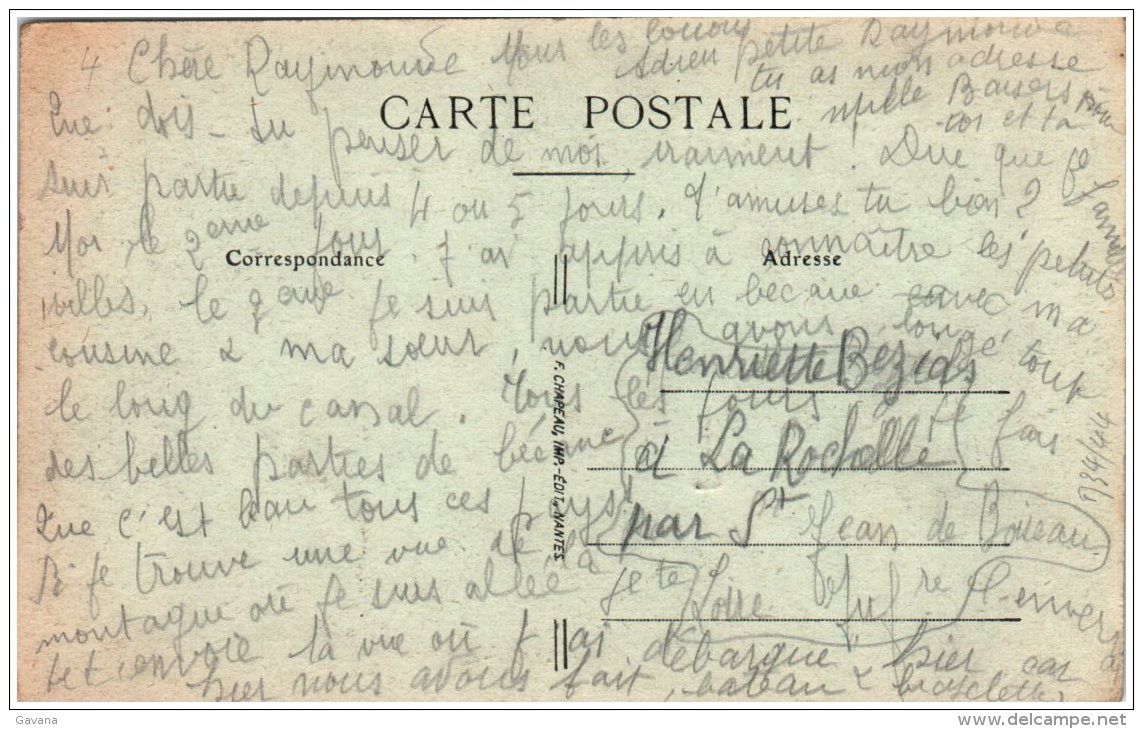 4 Chère Raymonde
Tous les
Adieu petite Raymonde
tu as mon adresse
mille Baisers pour
toi et ta
famille
CARTE POSTALE
Que dois-tu penser de moi vraiment ! Dire que je
suis partie depuis 4 ou 5 jours. T'amuses tu bien ?
Moi, le 2ème jour j'ai appris à connaître les petites
Correspondance
Adresse
villes, le jème je suis partie en bécane avec ma
cousine & ma sœur, nous avons longé tout
le long du canal. Tous les jours je fais
des belles parties de bécane
Que c'est beau tous ces pays!
Si je trouve une vue de la
montagne où je suis allée je te
l'enverrai
et t'envoie la vue où j'ai débarqué hier car
hier nous avons fait bateau & bicyclette
Henriette Bezias
à La Rochelle
par St Jean de Boiseau
Loire Infre
F. CHAPEAU, IMP.-ÉDIT., NANTES
934/44
Gavana
www.delcampe.net